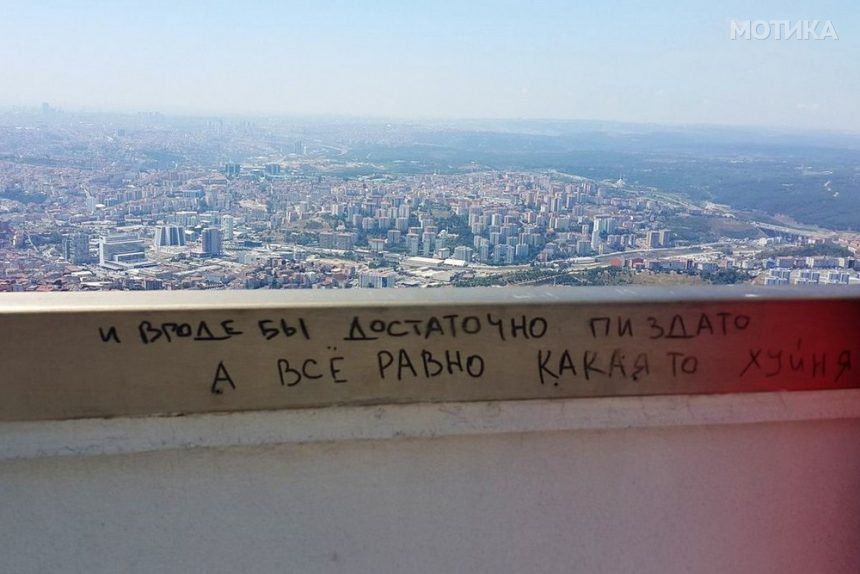 МОТИКА
И ВРОДЕ БЫ ДОСТАТОЧНО ПИЗДАТО
А ВСЁ РАВНО КАКАЯ ТО ХУЙНЯ